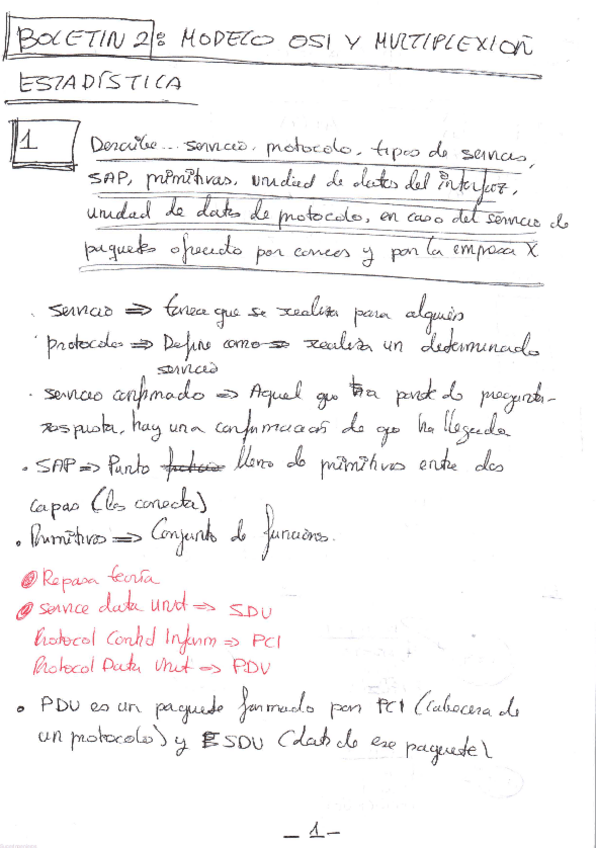 BOLETIN 2: MODELO OSI Y MULTIPLEXION
ESTADÍSTICA
1
Describe... servicio, protocolo, tipos de servicios,
SAP, primitivas, unidad de datos del interfaz,
unidad de datos de protocolo, en caso del servicio de
paquetes ofrecido por correos y por la empresa X
· servicio => tarea que se realiza para alguien
· protocolo => Define como se realiza un determinado
servicio
· servicio confirmado => Aquel que a parte de pregunta-
respuesta, hay una confirmación de que ha llegado
• SAP => Punto lleno de primitivas entre dos
capas (las conecta)
• Primitivas => Conjunto de funciones.
Repasa teoría
service data Unit => SDU
Protocol Control Inform => PCI
Protocol Data Unit => PDU
• PDU es un paquete formado por PCI (cabecera de
un protocolo) y SDU (datos de ese paquete)
- 1 -